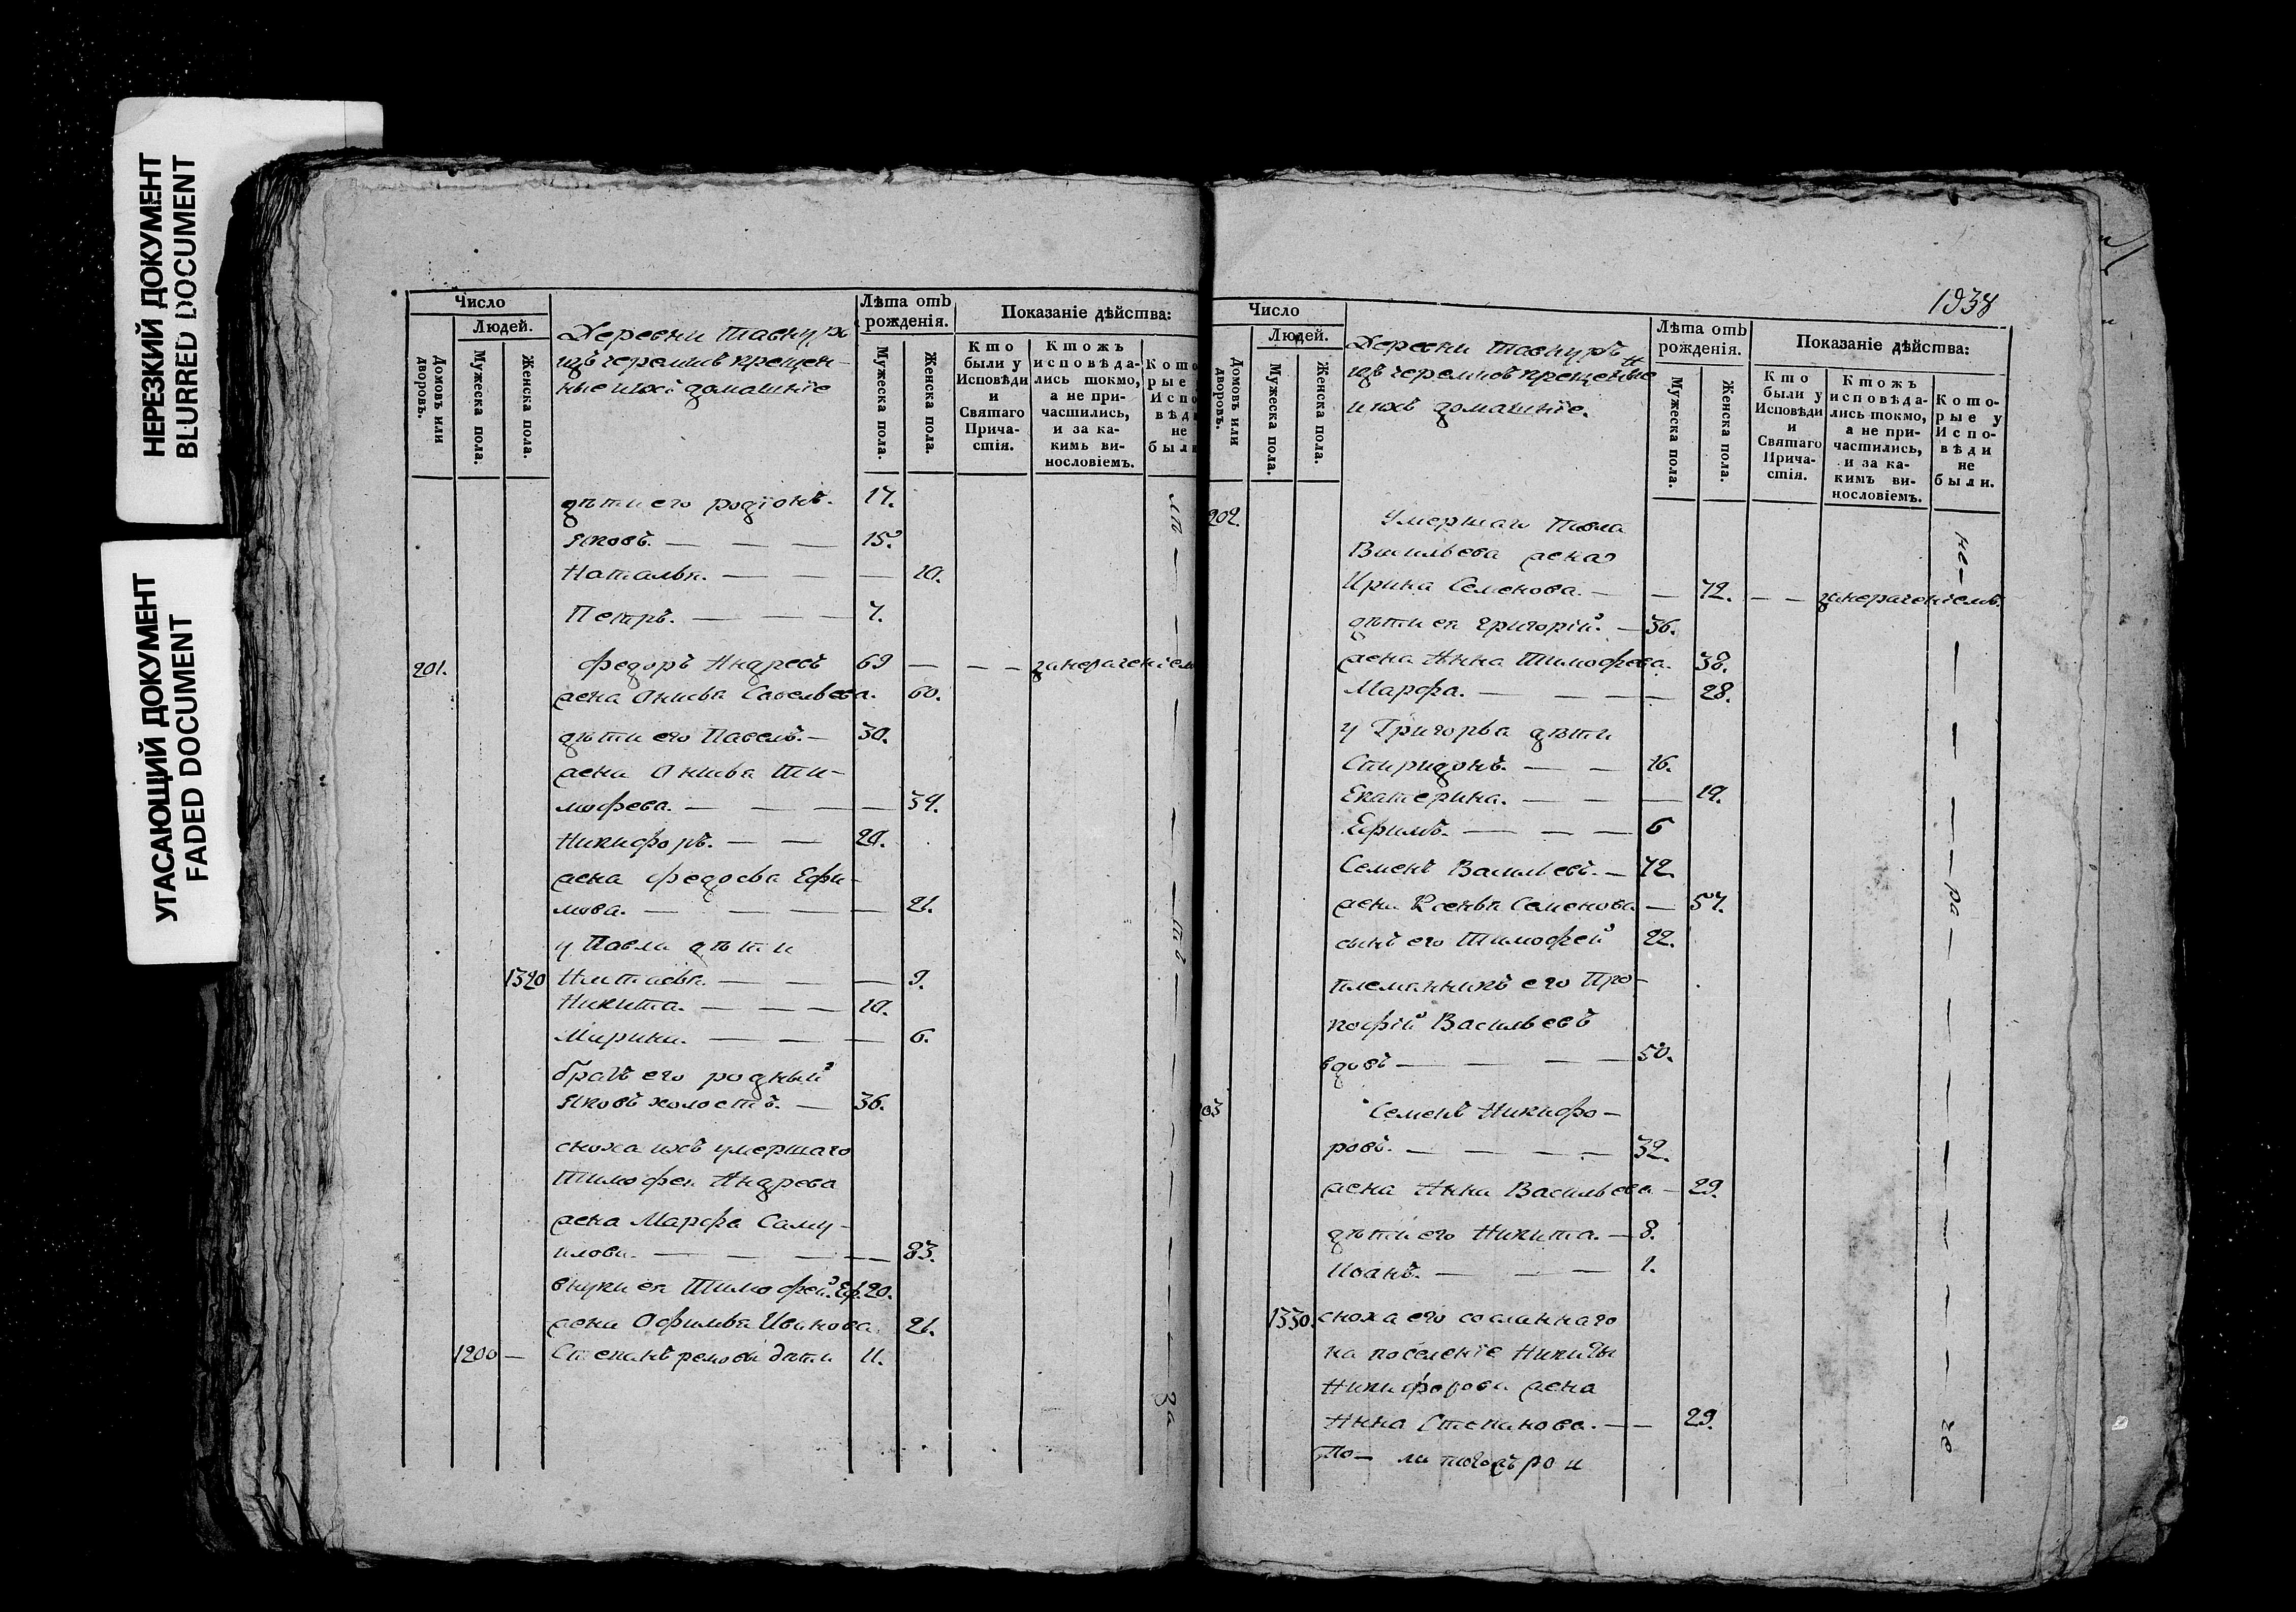 НЕРЕЗКИЙ ДОКУМЕНТ
BLURRED DOCUMENT
УГАСАЮЩИЙ ДОКУМЕНТ
FADED DOCUMENT
Число
Людей.
Домовъ или дворовъ.
Мужеска пола.
Женска пола.
Деревни
изъ черемисъ крещен-
ные ихъ домашніе
Лѣта отъ рожденія.
Мужеска пола.
Женска пола.
Показаніе дѣйства:
Кто были у Исповѣди и Святаго Прича-стія.
Ктожъ исповѣда-лись токмо, а не при-частились, и за ка-кимъ ви-нословіемъ.
Кото-рые Испо-вѣди не были
дѣти его родіонъ. 17.
Яковъ. — — — 15.
Наталья. — — — 10.
Петръ. — — — 7.
201. Федоръ Андреевъ 69 — — — занерачением
жена Онисья Савельева. 60.
дѣти его Павелъ. — 30.
жена Онисья Ти-
мофеева. — — — — 34.
Никифоръ. — — 20.
жена Федосья Ефи-
мова. — — — — 21.
у Павла дѣти
1320 Настасья. — — — 9.
Никита. — — — 10.
Марина. — — — 6.
братъ его родный
Яковъ холостъ. — 36.
сноха ихъ умершаго
Тимофея Андреева
жена Марфа Саму-
илова. — — — — 83.
внуки ея Тимофей. Еф. 20.
жена Офимья Иванова. 21.
1200 — Степанъ дѣти 11.
за
1938
Число
Людей.
Домовъ или дворовъ.
Мужеска пола.
Женска пола.
Деревни
изъ черемисъ крещенные
ихъ домашніе.
Лѣта отъ рожденія.
Мужеска пола.
Женска пола.
Показаніе дѣйства:
Кто были у Исповѣди и Святаго Прича-стія.
Ктожъ исповѣда-лись токмо, а не при-частились, и за ка-кимъ ви-нословіемъ.
Кото-рые у Испо-вѣди не были.
202. Умершаго Павла
Васильева жена
Ирина Семенова. — — 72. — — занерачениемъ.
дѣти ея Григорій. — 36.
жена Анна Тимофеева. 38.
Марфа. — — — — 28.
у Григорья дѣти
Спиридонъ. — — 16.
Екатерина. — — — 19.
Ефимъ. — — — 6
Семенъ Васильевъ. — 72.
жена Ксенья Семенова — 57.
сынъ его Тимофей 22.
племянникъ его Про-
кофій Васильевъ
вдовъ — — — — 50.
203 Семенъ Никифо-
ровъ. — — — — 32.
жена Анна Васильева — 29.
дѣти его Никита. — 8.
Иоанъ. — — — 1.
1330. сноха его сосланнаго
на поселеніе Никиты
Никифорова жена
Анна Степанова. — — 29.
не
ра
че